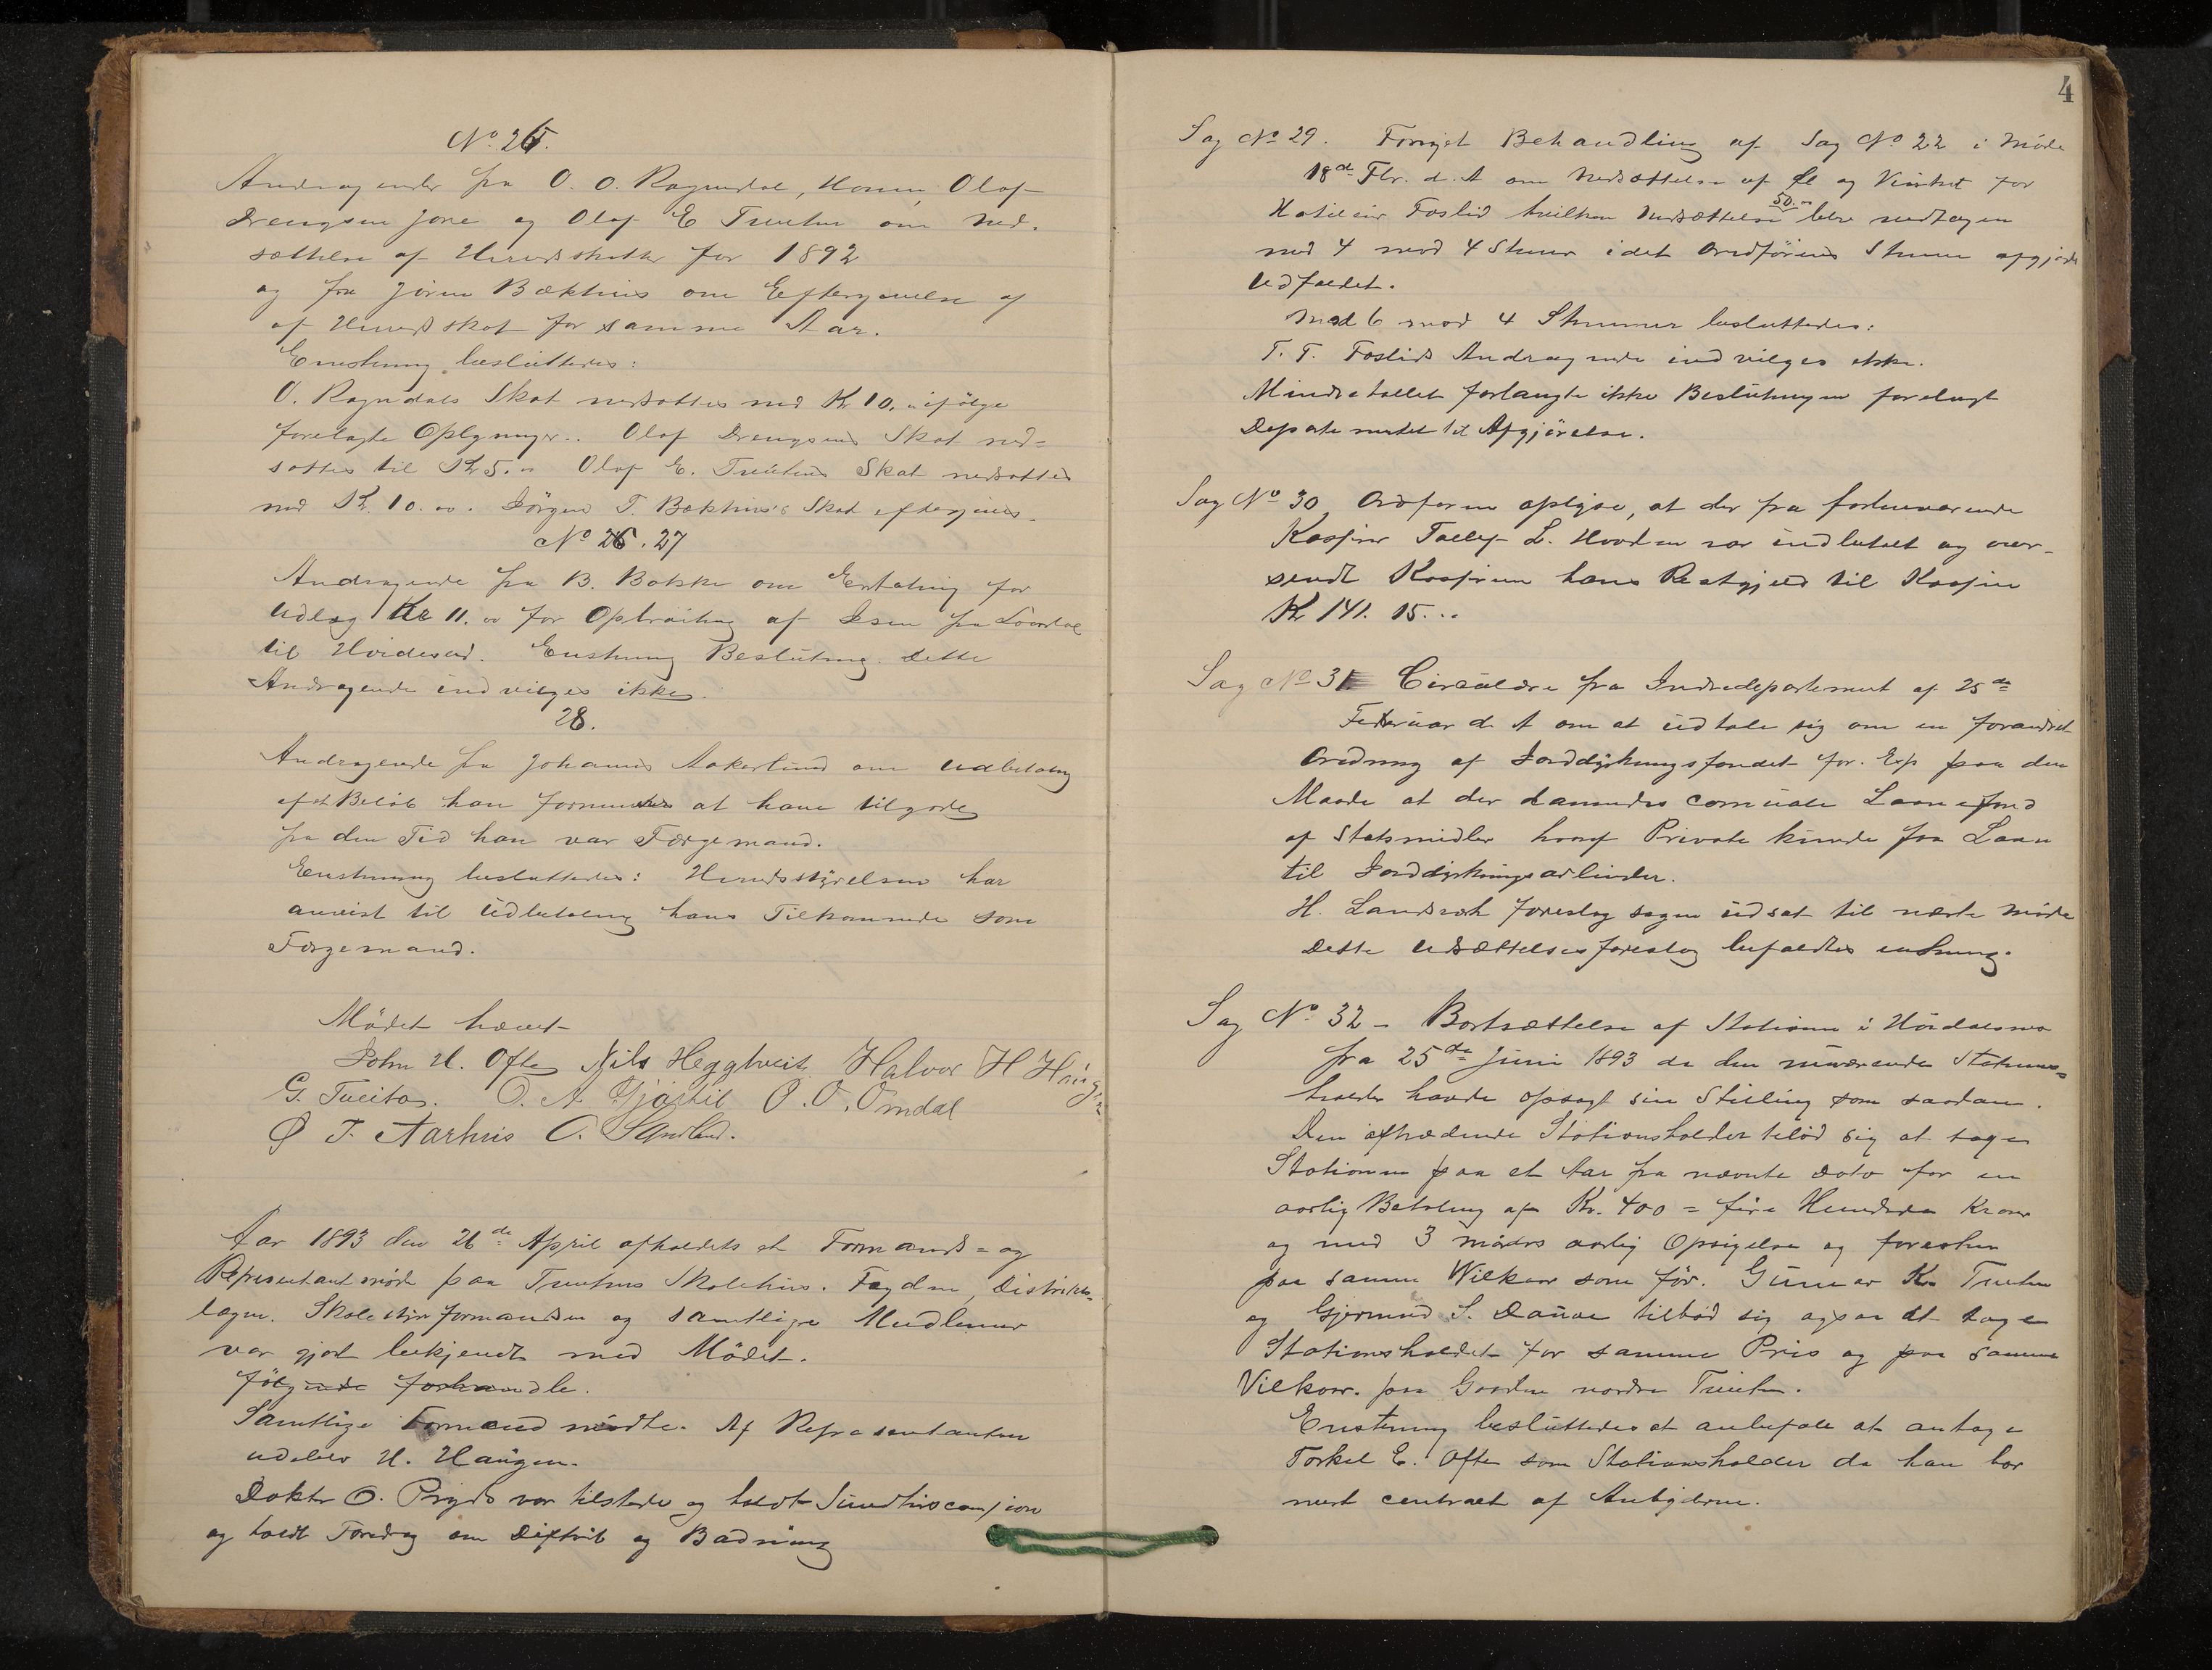 No. 26.
Andragender fra O. O. Ragndal, Olaf
Drengsen Jore og Olaf E Tveiten om Ned-
sættelse af Herredsskatter for 1892
og fra Jørn Bækhus om Eftergivelse af
af Herredsskat for samme Aar.
Enstemmig besluttedes:
O. Ragndals Skat nedsattes med Kr 10. ifølge
forelagte Oplysninger. Olaf Drengsens Skat ned-
sattes til Kr 5. Olaf E. Tveitens Skat nedsattes
med Kr. 10.00. Jørgen T. Bækhus's Skat eftergives.
No 26. 27
Andragende fra B. Bakke om Erstatning for
Udlæg Kr 11.00 for Opbrditning af Isen fra
til Hvideseid. Enstemmig Beslutning. Dette
Andragende indvilges ikke.
28.
Andragende fra Johannes Aakerlund om Udbetaling
af et Beløb han formener at have tilgode
fra den Tid han var Færgemand.
Enstemmig besluttedes: Herredsstyrelsen har
anvist til Udbetaling hans Tilkommende som
Færgemand.
Mødet hævet
John H. Ofte Nils Heggtveit Halvor H Haugen
G. Tveito. O. A. Gjøstil O. O. Omdal
Ø T. Aarhus O. Sandland.
Aar 1893 den 26de April afholdets et Formands- og
Repræsentantmøde paa Tveitens Skolehus. Fogden, Distrikts-
lægen. Skolestyrformanden og samtlige Medlemer
var gjort bekjendt med Mødet.
følgende forhandle.
Samtlige Formænd mødte. Af Repræsentanten
udeblev H. Haugen.
Doktor O. Pryds var tilstede og holdt Sundhedscomission
og holdt Foredrag om Difterit og Badning
4
Sag No 29. Fornyet Behandling af Sag No 22 i Møde
18de Fbr. d. A om Nedsættelse af Øl og Vinskat for
50.
Hotelleier Foslid hvilken Nedsættelse blev vedtagen
med 4 mod 4 Stemmer idet Ordførerens Stemme afgjorde
Udfaldet.
Med 6 mod 4 Stemmer besluttedes:
T. T. Foslids Andragende indvilges ikke.
Mindretallet forlangte ikke Beslutningen forelagt
Departementet til Afgjørelse.
Sag No 30, Ordføren oplyse, at der fra forhenværende
Kasjerer Tallef L. Hovden var indbetalt og over-
sendt Kasjeren hans Restgjæld til Kassen
Kr 141. 15...
Sag No 31 Circulære fra Indredepartement af 25de
Februar d. A om at udtale sig om en forandret
Ordning af Jorddyrkningsfondet for. Exp paa den
Maade at der dannedes comunale Laanefond
af Statsmidler hvoraf Private kunde faa Laan
til Jorddyrkningsarbeider.
H. Landsverk foreslog sagen udsat til næste Møde
Dette Udsættelsesforeslag bifaldtes enstemmig.
Sag No 32 - Bortsættelse af Stationen i Høidalsmo
fra 25de Juni 1893 da den nuværende Stations-
holder havde opsagt sin Stilling som saadan.
Den aftrædende Stationsholder tilbød sig at tage
Stationen paa et Aar fra nævnte Dato for en
aarlig Betaling af Kr. 400 = fire Hundrede Kroner
og med 3 måders aarlig Opsigelse og forøvrigt
paa samme Wilkaar som før. Gunnar K. Tveiten
og Gjermund S. Dalaae tilbød sig ogsaa at tage
Stationsholdet for samme Pris og paa samme
Vilkaar. paa Gaarden nordre Tveiten.
Enstemmig besluttedes at anbefale at antage
Torkel E. Ofte som Stationsholder da han bor
mest centralt af Anbyderne.